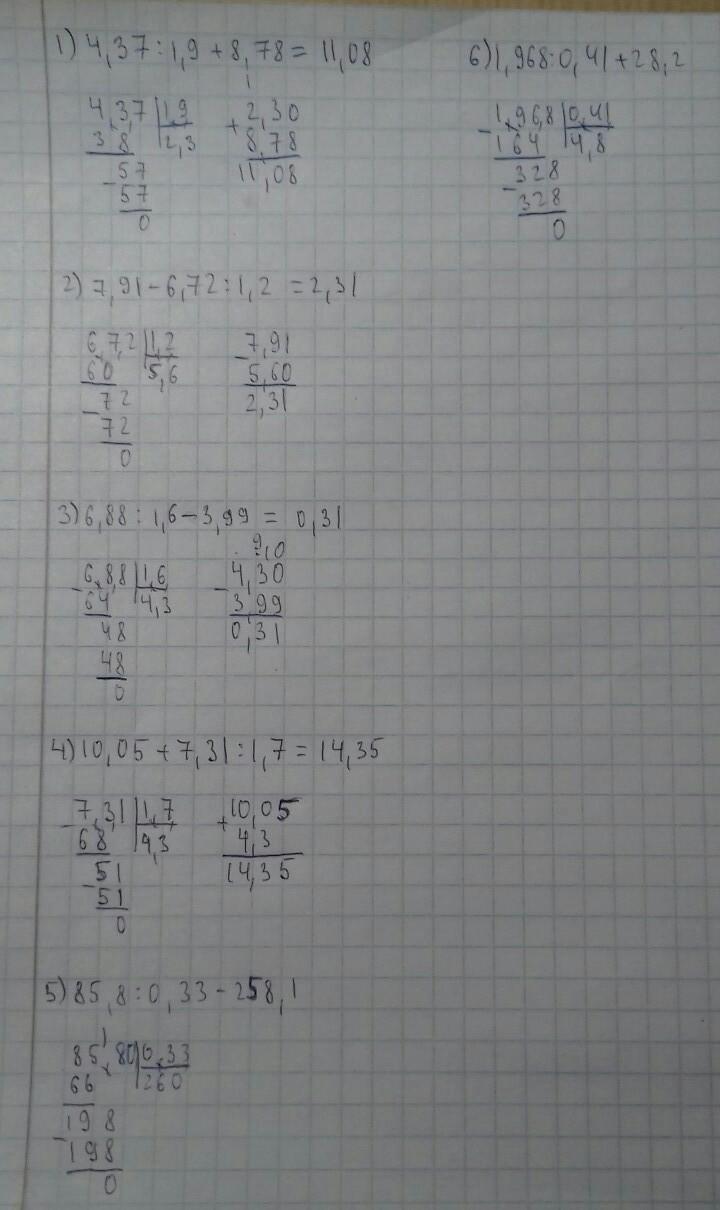 1) 4,37 : 1,9 + 8,78 = 11,08
4,3,7 | 1,9
3 8 | 2,3
- 57
57
0
1
+ 2,30
8,78
11,08
2) 7,91 - 6,72 : 1,2 = 2,31
6,7,2 | 1,2
- 60 | 5,6
- 72
72
0
- 7,91
5,60
2,31
3) 6,88 : 1,6 - 3,99 = 0,31
- 6,8,8 | 1,6
64 | 4,3
48
48
0
9 10
- 4,30
3,99
0,31
4) 10,05 + 7,31 : 1,7 = 14,35
- 7,3,1 | 1,7
68 | 4,3
- 51
51
0
+ 10,05
4,3
14,35
5) 85,8 : 0,33 - 258,1
85,80 | 0,33
66 | 260
198
- 198
0
6) 1,968 : 0,41 + 28,2
- 1,96,8 | 0,41
164 | 4,8
- 328
328
0